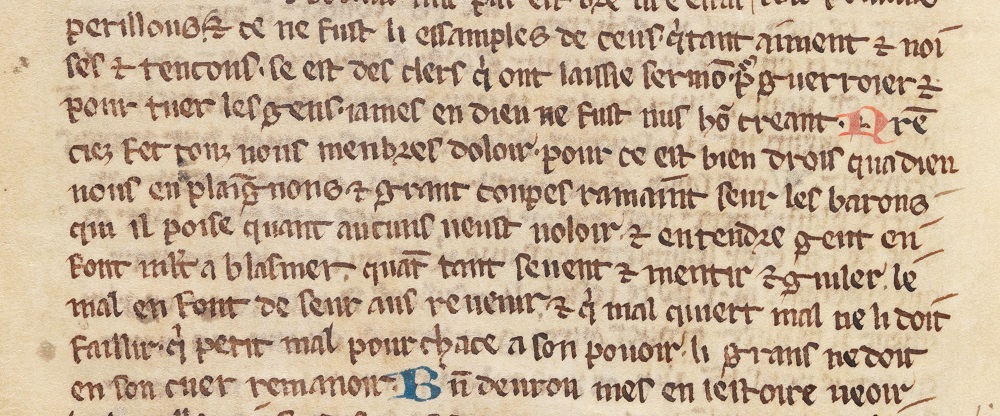 perillous · ce ne fust li essamples de ceus q̇ tant aiment ⁊ noi
ses ⁊ tencons · se est des clers q̇ ont laissie sermō · pͦ guerroier ⁊
pour tuer les gens · iames en dieu ne fust nus hō creant · Nrē
ciez fet touz nous menbres doloir · pour ce est bien drois qua dieu
nous en plaīg̅nons ⁊ grant coupes ramainnt seur les barons
qui il poise quant aucuns veust voloir ⁊ entend̄re gent en
font mlt a blasmer · quāt tant seuent ⁊ mentir ⁊ guiler · le
mal en font de seur aus reuenir · ⁊ q̇ mal quiert mal ne li doit
faillir · q̇ petit mal pourchace a son pouoir · li grans ne doit
en son cuer remanoir · Bn̄ deuron mes en lestoire ueoir